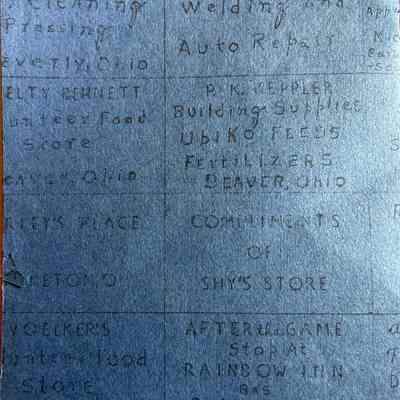 Cleaning
Pressing
everly, Ohio
Welding and
Auto Repair
ELTY BENNETT
unteer Food
Store
eaver, Ohio
P. K. KEPPLER
Building Supplies
Ubiko FEEDS
FertiLIZERS
BEAVER, Ohio
LEY'S PLACE
KETON, O
COMPLIMENTS
OF
SHY'S STORE
VOELKER'S
unteer Food
Store
AFTER the GAME
Stop At
RAINBOW INN
Gas